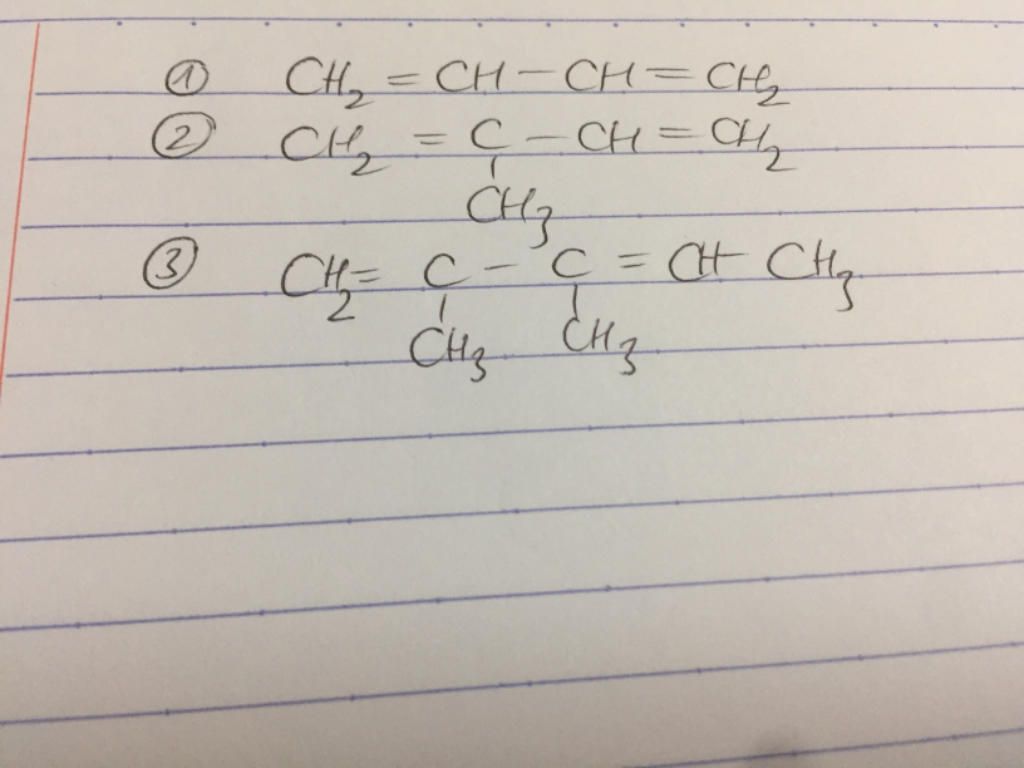 ① CH₂ = CH – CH = CH₂
② CH₂ = C – CH = CH₂
CH₃
③ CH₂ = C – C = CH – CH₃
CH₃ CH₃